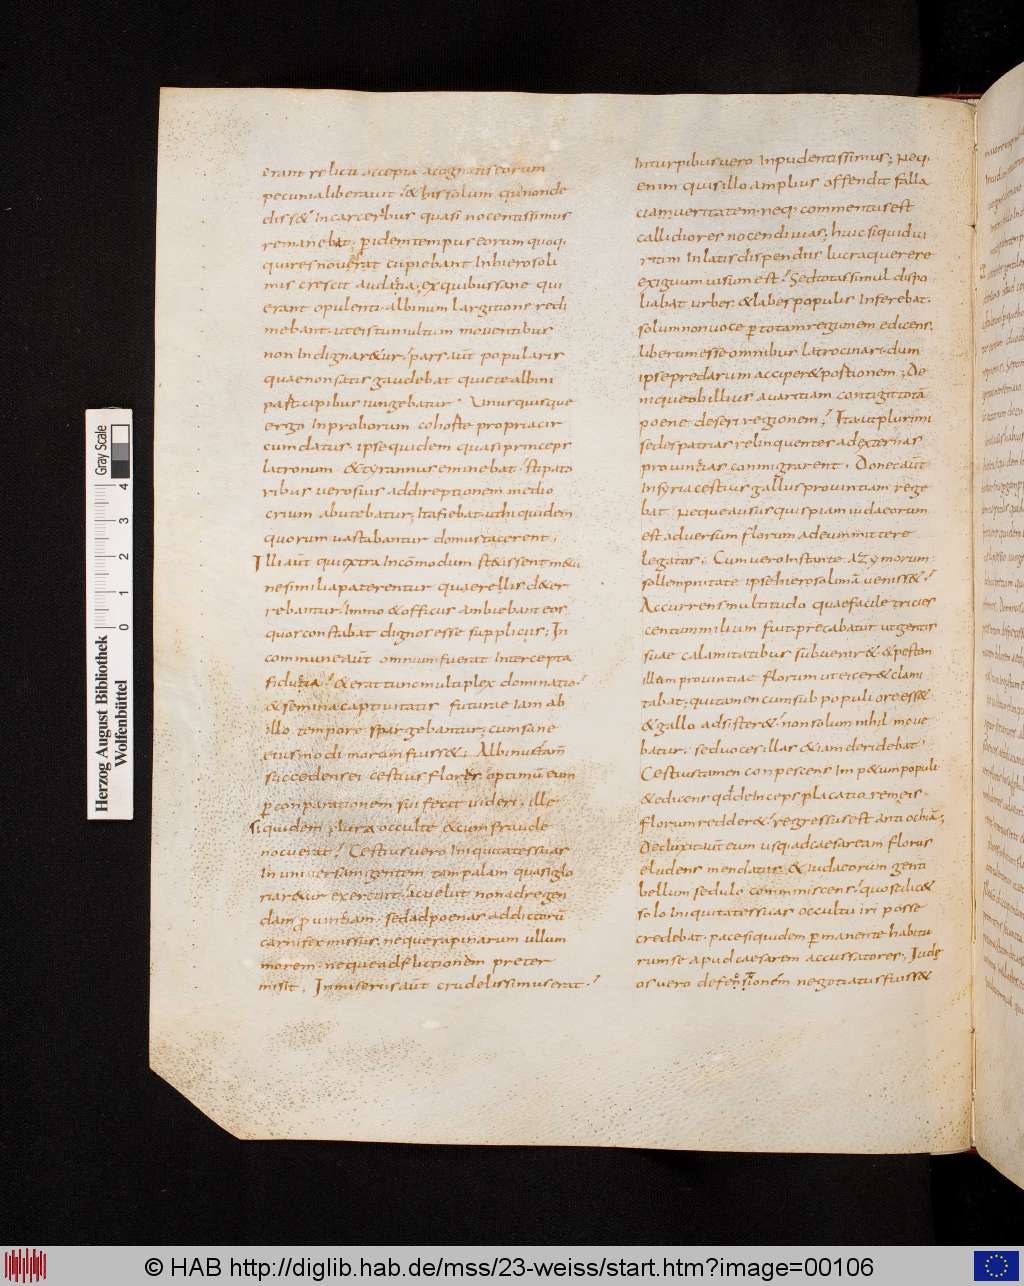 erant relicti accepta acognatis eorum
pecunia liberauit. & his solum qui non de
diss& In carceribus quasi nocentissimus
remanebat. p idem tempus eorum quoq.
qui res nouerat cupiebant In hierosoli
mis crescit audatia. ex quibus sane qui
erant opulenti albinum largitione redi
mebant. ut
non Indignar&ur. pars aut popularis
quae non satis gaudebat quiete albini
participibus iungebatur. Unus quisque
ergo Inproborum cohorte propria cir
cumdatus. ipse quidem quasi princeps
latronum. & tyrannus eminebat. stipato
ribus uero suis ad direptionem medio
crium abutebatur; Ita fiebat uthi quidem
quorum uastabantur domus tacerent;
Illi aut qui extra Incomodum st&issent m&u
ne similia paterentur quaerellis d&er
rebantur. Immo & officiis ambiebant eos
quos constabat dignos esse suppliciis; In
commune aut omnium fuerat Intercepta
fidutia. & erat tunc multiplex dominatio.
& semina captiuitatis futurae iam ab
illo tempore spargebantur; cum sane
eiusmodi morum fuiss&; Albinus tam
succedens ei cestius florus optimu eum
p conparationem sui fecit uideri. ille
siquidem plura occulte & cum fraude
nocuerat. Cestius uero Iniquitates suas
In uniuersam gentem tam palam quasi glo
riar&ur exercuit. ac uelut non ad regen
dam prouintiam. sed ad poenas addictoru
carnifex missus. neque rapinarum ullum
morem. neque adflictionem preter
misit; In miseriis aut crudelissimus erat.
In turpibus uero Inpudentissimus; Neq.
enim quis illo amplius offendit falla
ciam ueritatem. neq. commentus est
callidiores nocendi uias; huic siquidui
ritim Inlatis dispendiis lucra querere
exiguum uisum est. Sed totas simul dispo
liabat urbes. & labes populis Inferebat.
solum non uoce p totam regionem edicens.
liberum esse omnibus latrocinari. dum
ipse predarum acciper& postionem; De
nique ob illius auaritiam contigit tota
poene deseri regionem. Ita ut plurimi
sedes patrias relinquentes ad externas
prouintias conmigrarent. Donec aut
In syria cestius gallus prouintiam rege
bat. Neque ausus quispiam iudaeorum
est aduersum florum ad eum mittere
legatos; Cum uero Instante AZymorum
sollempnitate ipse hierosolima uenisse&.
Accurrens multitudo quae facile tricies
centum milium fuit. precabatur ut gentis
suae calamitatibus subuenir& & pesten
illam prouintiae florum ut eicer& clami
tabat; qui tamen cum sub populi ore ess&
& gallo adsister& non solum nihil moue
batur; sed uoces illas & iam deridebat.
Cestius tamen conpescens Imp&um populi
& edicens qd deInceps placatiorem eis
florum redder& regressus est antiochia;
Deduxit aut eum usq. ad caesaream florus
eludens mendatiis. & iudaeorum genti
bellum sedulo comminiscens. quo sedic&
solo Iniquitates suas occultu iri posse
credebat. pace siquidem pmanente habitu
rum se apud caesarem accussatores; Iude
os uero defensionem negotiatus fuiss&
Herzog August Bibliothek
Wolfenbüttel
Gray Scale
0 1 2 3 4
© HAB http://diglib.hab.de/mss/23-weiss/start.htm?image=00106